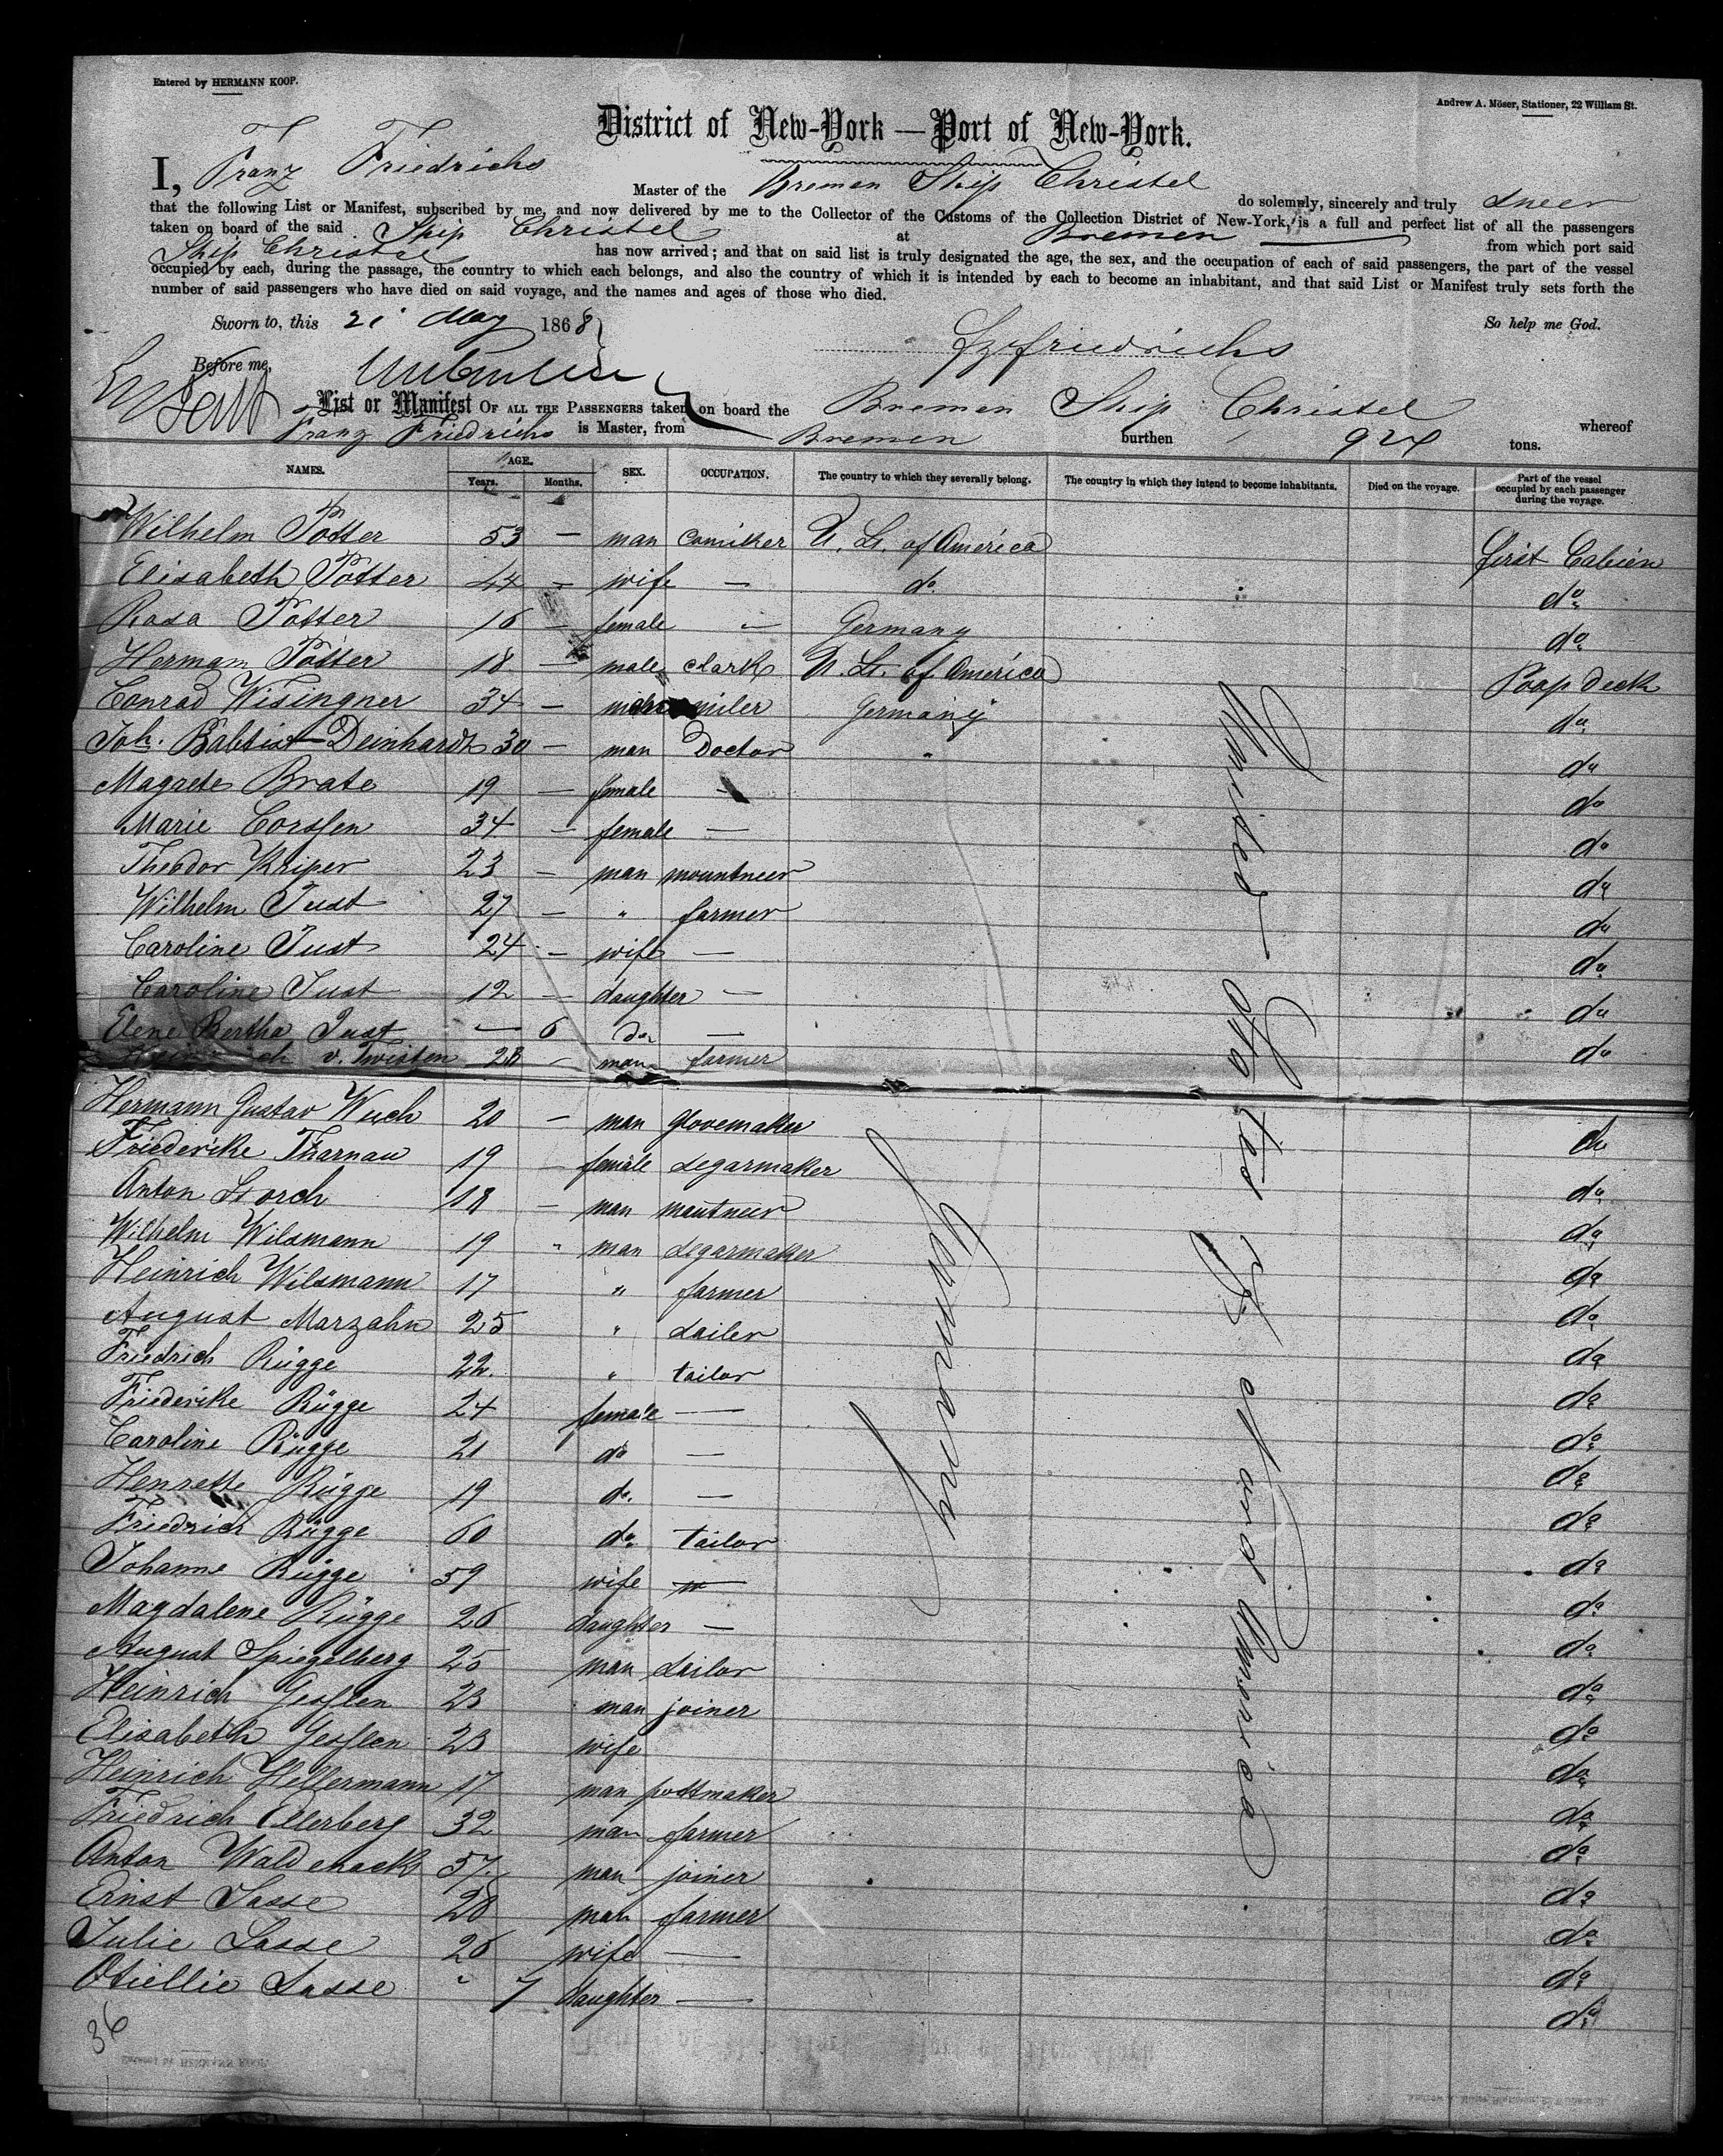 Entered by HERMANN KOOP.
Andrew A. Möser, Stationer, 22 William St.
District of New-York — Port of New-York.
I, Franz Friedrichs Master of the Bremen Ship Christel do solemnly, sincerely and truly swear
that the following List or Manifest, subscribed by me, and now delivered by me to the Collector of the Customs of the Collection District of New-York, is a full and perfect list of all the passengers
taken on board of the said Ship Christel at Bremen from which port said
Ship Christel has now arrived; and that on said list is truly designated the age, the sex, and the occupation of each of said passengers, the part of the vessel
occupied by each, during the passage, the country to which each belongs, and also the country of which it is intended by each to become an inhabitant, and that said List or Manifest truly sets forth the
number of said passengers who have died on said voyage, and the names and ages of those who died.
Sworn to, this 21 May 1868 So help me God.
Fz Friedrichs
Before me,
List or Manifest OF ALL THE PASSENGERS taken on board the Bremen Ship Christel whereof
Franz Friedrichs is Master, from Bremen burthen 924 tons.
NAMES. AGE. Years. Months. SEX. OCCUPATION. The country to which they severally belong. The country in which they intend to become inhabitants. Died on the voyage. Part of the vessel occupied by each passenger during the voyage.
Wilhelm Potter 53 — man U. St. of America first Cabien
Elisabeth Potter 44 — wife — do. do.
Rosa Potter 16 — female — Germany do.
Hermann Potter 18 — male clark U. St. of America Poop deck
Conrad Wisingner 34 — miler Germany do.
Joh. Babtist Deinhardt 30 — man Doctor " do
Magrete Brate 19 — female — do
Marie Corssen 34 — female — do
Theodor Kriper 23 — man mountneer do
Wilhelm Just 27 — " farmer do
Caroline Just 24 — wife — do
Caroline Just 12 — daughter — do
Elene Bertha Just — 6 do — do
v. Twisten 28 — man farmer
Hermann Gustav Wuch 20 — man glovemaker do
Friederike Tharnau 19 — female segarmaker do
Anton Storch 18 — man mautneer do
Wilhelm Wilsmann 19 " man segarmaker do
Heinrich Wilsmann 17 " farmer do
August Marzahn 25 " sailer do
Friedrich Rügge 22. " tailor do
Friederike Rügge 24 female — do
Caroline Rügge 21 do — do
Henrette Rügge 19 do. — do
Friedrich Rügge 60 do. tailor do
Johanne Rügge 59 wife — do
Magdalene Rügge 26 daughter — do
August Spiegelberg 25 man sailor do
Heinrich Gesslen 23 man joiner do
Elisabeth Gesslen 23 wife do
Heinrich Hellermann 17 man pottmaker do
Friedrich Ellerberg 32 man farmer do
Anton 57 man joiner do
Ernst Sasse 28 man farmer do
Julie Sasse 26 wife — do
Otiellie Sasse " 7 daughter — do
Germany
United States of Nord America
36